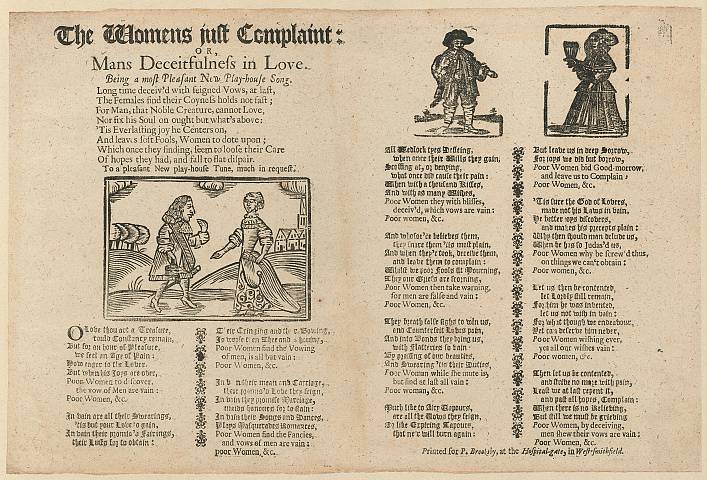 The Womens juſt Complaint:
OR,
Mans Deceitfulneſs in Love.
Being a moſt Pleaſant New Play-houſe Song.
Long time deceiv'd with feigned Vows, at laſt,
The Females find their Coyneſs holds not faſt;
For Man, that Noble Creature, cannot Love,
Nor fix his Soul on ought but what's above:
'Tis Everlaſting joy he Centers on,
And leaves ſoft Fools, Women to dote upon;
Which once they finding, ſeem to looſe their Care
Of hopes they had, and fall to flat diſpair.
To a pleaſant New play-houſe Tune, much in requeſt.
O Love thou art a Treaſure,
could Conſtancy remain,
But for an hour of Pleaſure,
we feel an Age of Pain:
How eager is the Lover,
But when his Joys are over,
Poor Women to diſcover,
the vow of Men are vain:
Poor Women, &c.
In vain are all their Swearings,
'tis but your Love to gain,
In vain their promis'd Fairings,
their Luſts for to obtain:
Their Cringing and their Bowing,
Poor Women find the Vowing
of men, is all but vain:
Poor Women, &c.
In vain their mean and Carriage,
their promis'd Love they feign,
In vain they promiſe Marriage,
In vain their Songs and Dances,
Plays Maſquerades Romances,
Poor Women find the Fancies,
and vows of men are vain:
poor Women, &c.
All Wedlock tyes Deſpiſing,
when once their Wills they gain,
Scoffing at, or denying,
what once did cauſe their pain:
When with a thouſand Kiſſes,
And with as many Wiſhes,
Poor Women they with bliſſes,
deceiv'd, which vows are vain:
Poor women, &c.
And whoſo're believes them,
they ſnare them 'tis moſt plain,
And when they're took, deceive them,
and leave them to complain:
Whilſt we poor Fools ſit Mourning,
They our Griefs are ſcorning,
Poor Women then take warning,
for men are falſe and vain:
Poor Women, &c.
They breath falſe ſighs to win us,
and Counterfeit Loves pain,
And into Bonds they bring us,
with Flatteries to vain:
By praiſing of our beauties,
And Swearing 'tis their Duties,
Poor Woman while ſhe mute is,
but find at laſt all vain:
Poor woman, &c.
Much like to Airy Vapours,
are all the Vows they feign,
Or like Expiring Tapours,
that ne'r will burn again:
But leave us in deep Sorrow,
For joys we did but borrow,
Poor Women bid Good-morrow,
and leave us to Complain;
Poor Women, &c.
'Tis ſure the God of Lovers,
made not his Laws in vain,
He better joys diſcovers,
and makes his precepts plain:
Why then ſhould man delude us,
When he has ſo Judas'd us,
Poor Women why be ſcrew'd thus,
on things we can't obtain:
Poor women, &c.
Let us then be contented,
let Lordly ſtill remain,
For him he was invented,
let us not wiſh in vain:
For what though we endeavour,
Yet can deſerve him never,
Poor Women wiſhing ever,
yet all our wiſhes vain:
Poor women, &c.
Then let us be contented,
and ſtrive no more with pain,
Leaſt we at laſt repent it,
and paſt all hopes, Complain:
When there is no Relieving,
But ſtill we muſt be grieving
Poor Women, by deceiving,
men ſhew their vows are vain:
Poor Women, &c.
Printed for P. Brooksby, at the Hoſpital-gate, in Weſt-ſmithfield.